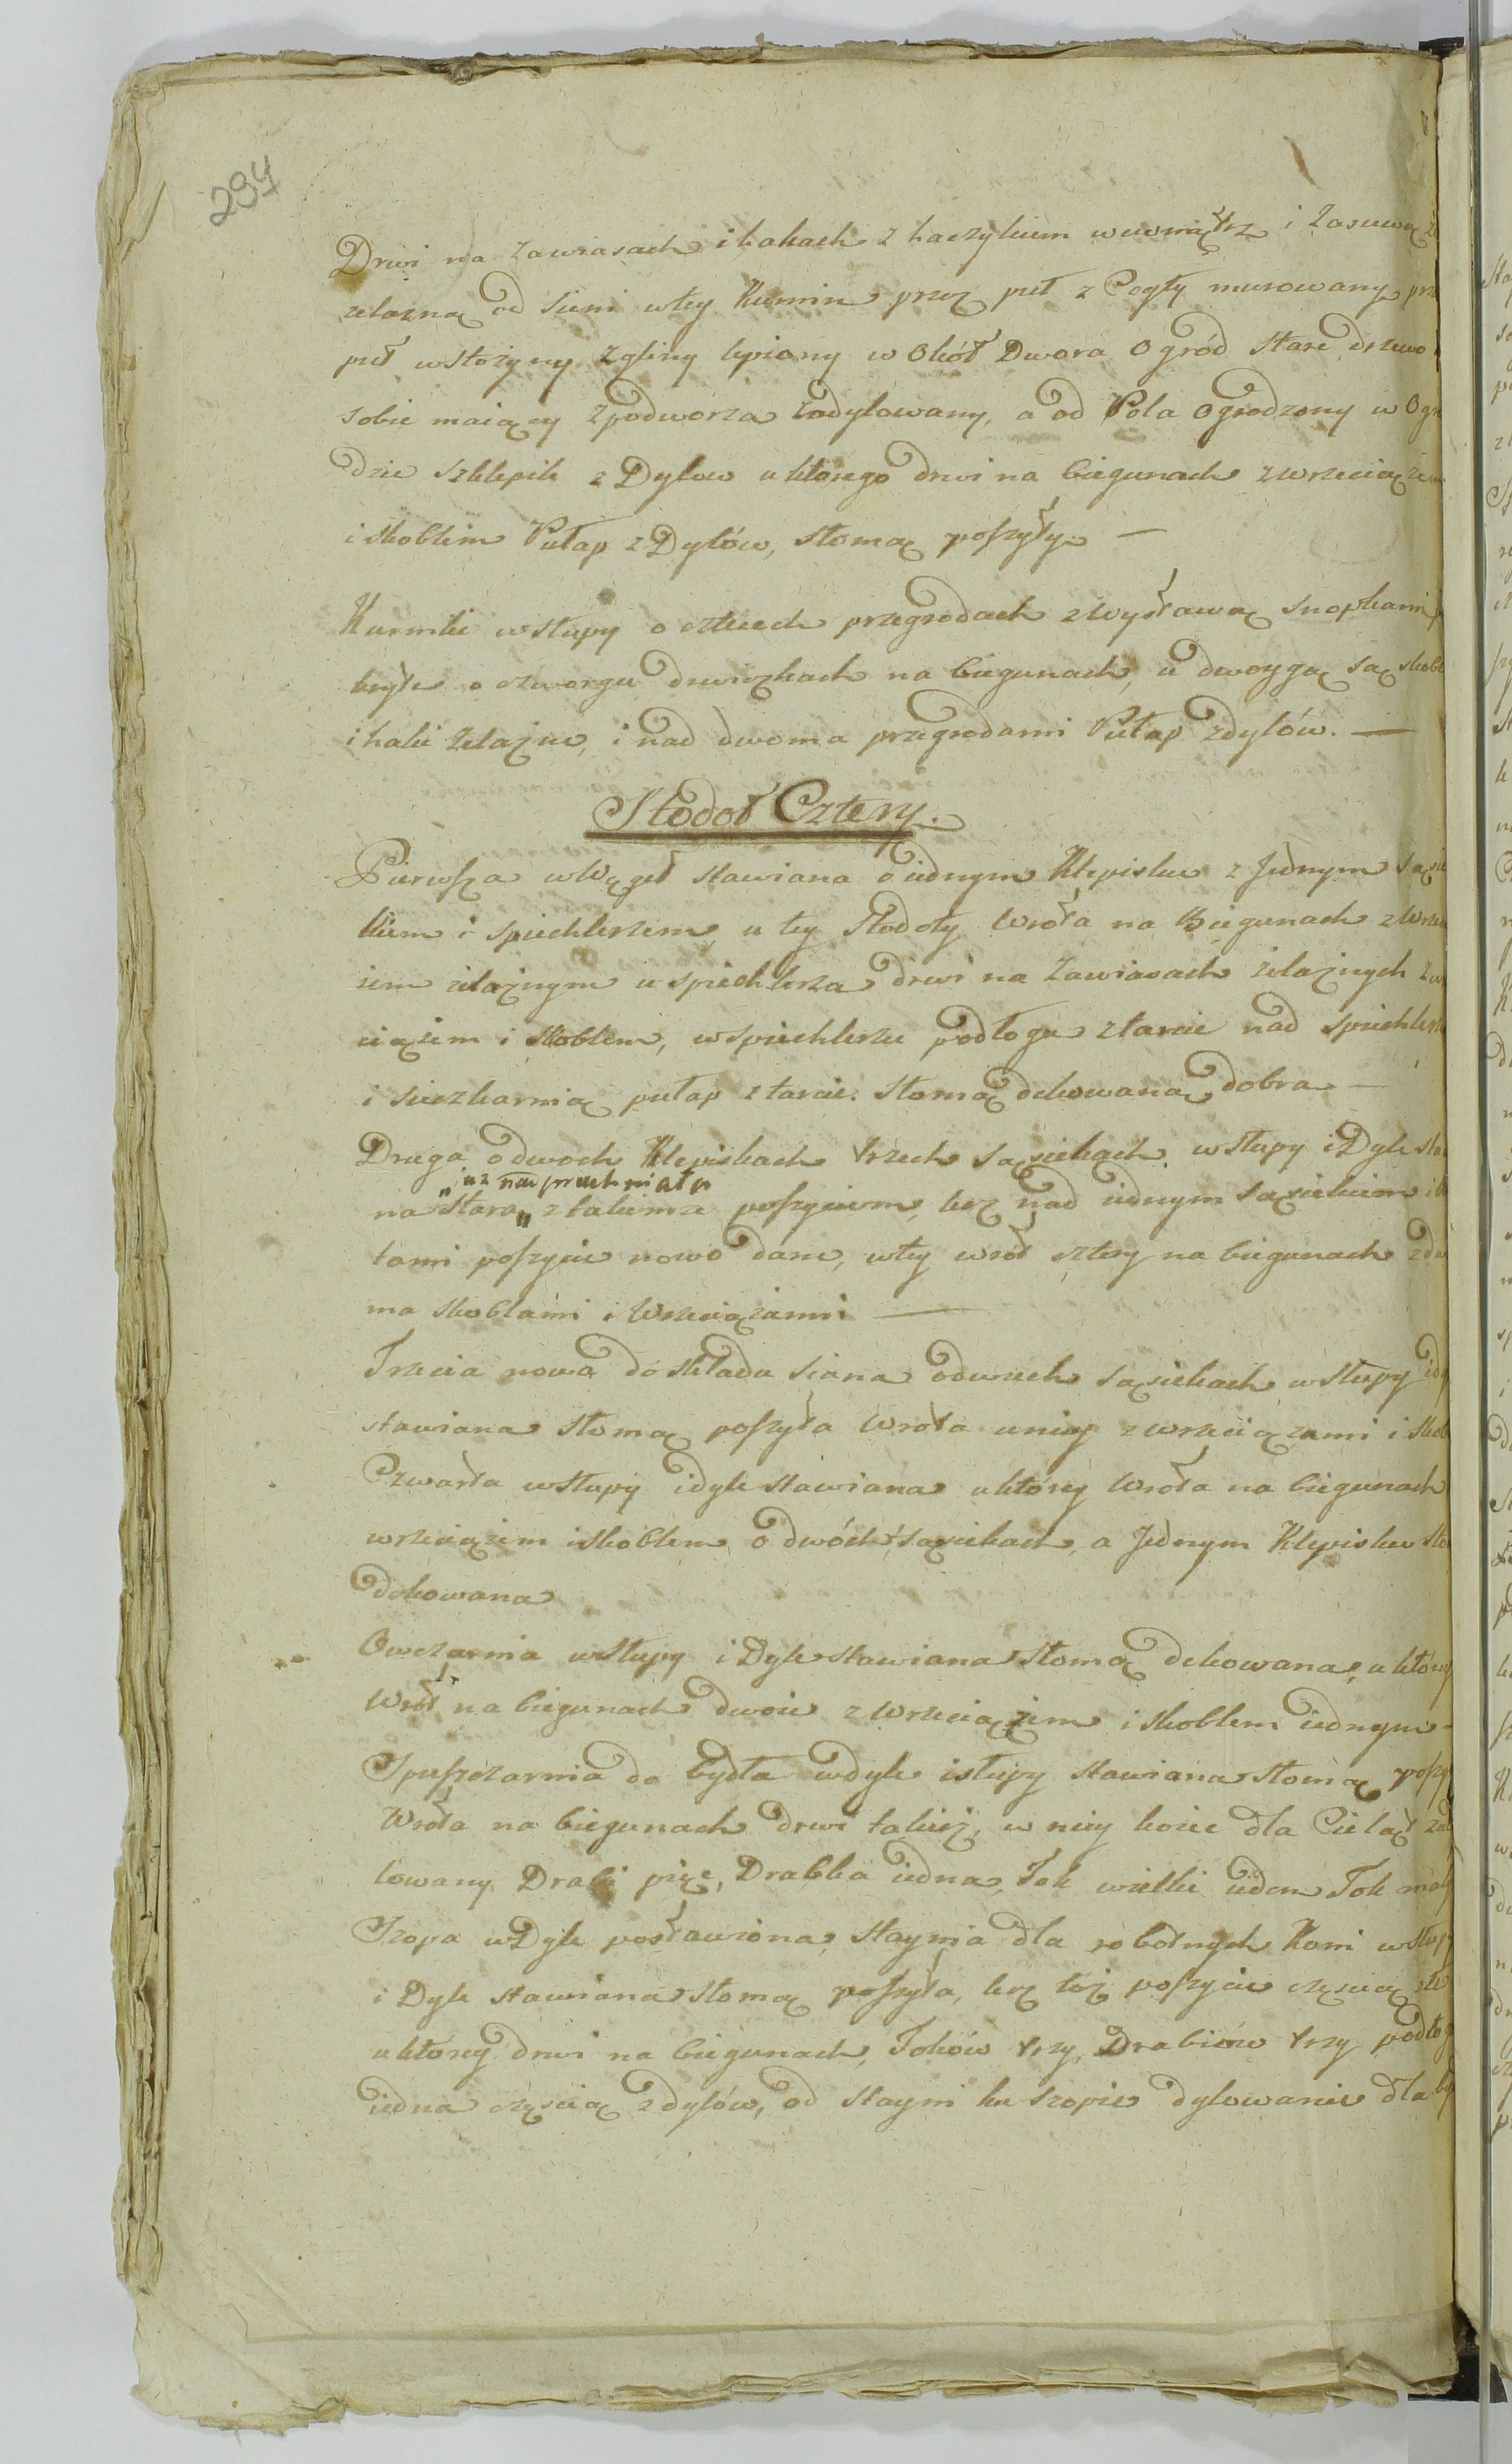 294
Drwi na zawiasach i hakach z haczykiem wewnątrz i zasuwą
żelazną od Sieni w tey Kumin przez puł z Cegły murowany prz
puł w stożyny z gliny lepiony w Okół Dwora Ogród stare drzewo
sobie maiący z podworza zadylowany, a od Pola ogrodzony w Ogr
dzie szklepik z Dylow u ktorego drwi na biegunach z wrzeciążem
i skoblem Pułap z Dylów, słomą poszyty —
Kurniki w słupy o cztech przegrodach z wystawą snopkami
kryte o czworgu drwiczkach na biegunach, u dwoyga są skobl
i haki żelazne, i nad dwoma przegrodami Pułap z dylów. —
Stodoł Cztery.
Pierwsza w Węgeł stawiana o iednym Klepisku z Jednym sąsie
kiem i spiechlerzem, u tey stodoły wrota na Biegunach z wrze
żem żelaznym u spiechlerza drwi na zawiasach żelaznych z w
ciążem i skoblem, w spiechlerzu podłoga z tarcic nad spichlerz
i sieczkarnią pułap z tarcic. Słomą dekowana dobra —
Druga o dwoch Klepiskach trzech sąsiekach w słupy i Dyle sta
„iuż na spruchniała
na stara„ z takiemże poszyciem, lecz nad iednym sąsiekiem i
tami poszycie nowo dane, w tey wrót cztery na biegunach z dw
ma skoblami i Wrzeciążami —
Trzecia nowa do składu siana o dwuch sąsiekach w słupy i dy
stawiana słomą poszyta wrota u niey z wrzeciążami i skob
Czwarta w słupy i dyle stawiana u któréy wrota na biegunach
wrzeciążem i skoblem o dwóch sąsiekach, a Jednym Klepisku sło
dekowana
Owczarnia w słupy i Dyle stawiana słomą dekowana, u któréy
Wrót na biegunach dwoie z wrzeciążem i skoblem iednym
Spuszczarnia do bydła w dyle i słupy stawiana słomą poszy
Wrota na biegunach drwi takież, w niey koiec dla Cieląt zad
lowany Drabi pięc, Drabka iedna, Żob wielki ieden Żob mały
Szopa w Dyle postawiona, staynia dla robotnych Koni w słup
i Dyle stawiana słomą poszyta, lecz toż poszycie częścią złe
u któréy drwi na biegunach, Żobów trzy, Drabiów trzy podłog
iedna częścią z dylów, od stayni ku szopie dylowanie dla by